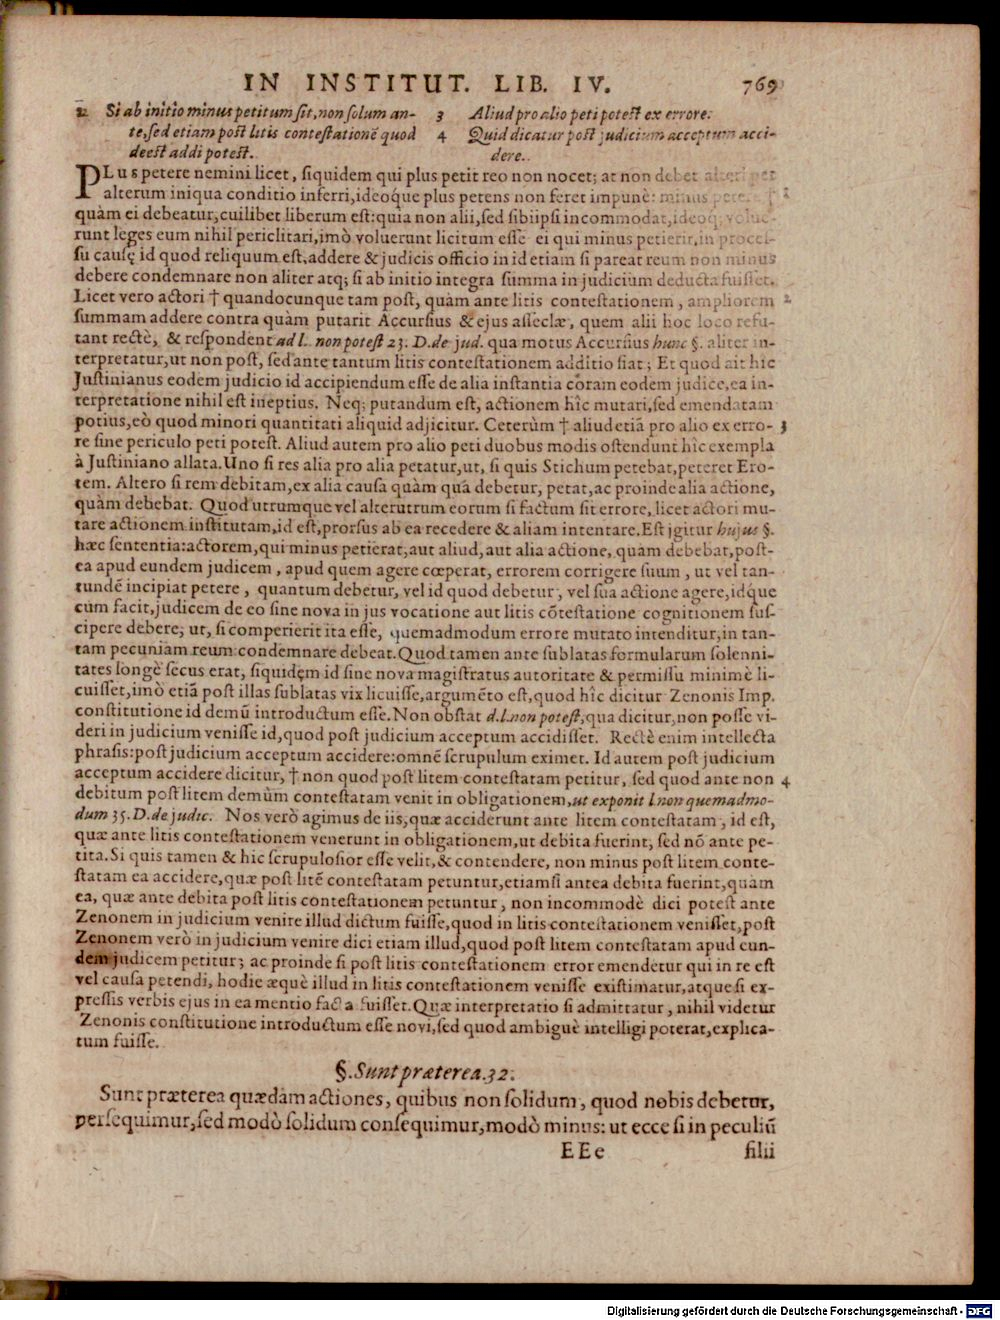 IN INSTITUT. LIB. IV. 769
2 Si ab initio minus petitum sit, non solum an-
te, sed etiam post litis contestationē quod
deest addi potest.
3 Aliud pro alio peti potest ex errore.
4 Quid dicatur post judicium acceptum acci-
dere.
PLus petere nemini licet, siquidem qui plus petit reo non nocet; at non debet alteri per
alterum iniqua conditio inferri, ideoq́ue plus petens non feret impunè: minus petere †
quàm ei debeatur, cuilibet liberum est: quia non alii, sed sibiipsi incommodat, ideoq; volue-
runt leges eum nihil periclitari, imò voluerunt licitum esse ei qui minus petierit, in proces-
su causę id quod reliquum est, addere & judicis officio in id etiam si pareat reum non minus
debere condemnare non aliter atq; si ab initio integra summa in judicium deducta fuisset.
Licet vero actori † quandocunque tam post, quàm ante litis contestationem, ampliorem 2
summam addere contra quàm putarit Accursius & ejus asseclæ, quem alii hoc loco refu-
tant rectè, & respondent ad l. non potest 23. D. de jud. qua motus Accursius hunc §. aliter in-
terpretatur, ut non post, sed ante tantum litis contestationem additio fiat; Et quod ait hic
Justinianus eodem judicio id accipiendum esse de alia instantia coram eodem judice, ea in-
terpretatione nihil est ineptius. Neq; putandum est, actionem hîc mutari, sed emendatam
potius, eò quod minori quantitati aliquid adjicitur. Ceterùm † aliud etiā pro alio ex erro- 3
re sine periculo peti potest. Aliud autem pro alio peti duobus modis ostendunt hîc exempla
à Justiniano allata. Uno si res alia pro alia petatur, ut, si quis Stichum petebat, peteret Ero-
tem. Altero si rem debitam, ex alia causa quàm quā debetur, petat, ac proinde alia actione,
quàm debebat. Quod utrumque vel alterutrum eorum si factum sit errore, licet actori mu-
tare actionem institutam, id est, prorsus ab ea recedere & aliam intentare. Est igitur hujus §.
hæc sententia: actorem, qui minus petierat, aut aliud, aut alia actione, quàm debebat, post-
ea apud eundem judicem, apud quem agere cœperat, errorem corrigere suum, ut vel tan-
tundē incipiat petere, quantum debetur, vel id quod debetur, vel sua actione agere, idq́ue
cùm facit, judicem de eo sine nova in jus vocatione aut litis cōtestatione cognitionem sus-
cipere debere; ut, si comperierit ita esse, quemadmodum errore mutato intenditur, in tan-
tam pecuniam reum condemnare debeat. Quod tamen ante sublatas formularum solenni-
tates longè secus erat, siquidem id sine nova magistratus autoritate & permissu minimè li-
cuisset, imò etiā post illas sublatas vix licuisse, argumēto est, quod hîc dicitur Zenonis Imp.
constitutione id demū introductum esse. Non obstat d. l. non potest, qua dicitur, non posse vi-
deri in judicium venisse id, quod post judicium acceptum accidisset. Rectè enim intellecta
phrasis: post judicium acceptum accidere: omnē scrupulum eximet. Id autem post judicium
acceptum accidere dicitur, † non quod post litem contestatam petitur, sed quod ante non 4
debitum post litem demùm contestatam venit in obligationem, ut exponit l. non quemadmo-
dum 35. D. de judic. Nos verò agimus de iis, quæ acciderunt ante litem contestatam, id est,
quæ ante litis contestationem venerunt in obligationem, ut debita fuerint, sed nō ante pe-
tita. Si quis tamen & hic scrupulosior esse velit, & contendere, non minus post litem conte-
statam ea accidere, quæ post litē contestatam petuntur, etiamsi antea debita fuerint, quàm
ea, quæ ante debita post litis contestationem petuntur, non incommodè dici potest ante
Zenonem in judicium venire illud dictum fuisse, quod in litis contestationem venisset, post
Zenonem verò in judicium venire dici etiam illud, quod post litem contestatam apud eun-
dem judicem petitur; ac proinde si post litis contestationem error emendetur qui in re est
vel causa petendi, hodie æquè illud in litis contestationem venisse existimatur, atque si ex-
pressis verbis ejus in ea mentio facta fuisset. Quæ interpretatio si admittatur, nihil videtur
Zenonis constitutione introductum esse novi, sed quod ambiguè intelligi poterat, explica-
tum fuisse.
§. Sunt præterea. 32.
Sunt præterea quædam actiones, quibus non solidum, quod nobis debetur,
persequimur, sed modò solidum consequimur, modò minus: ut ecce si in peculiū
EEe filii
Digitalisierung gefördert durch die Deutsche Forschungsgemeinschaft - DFG